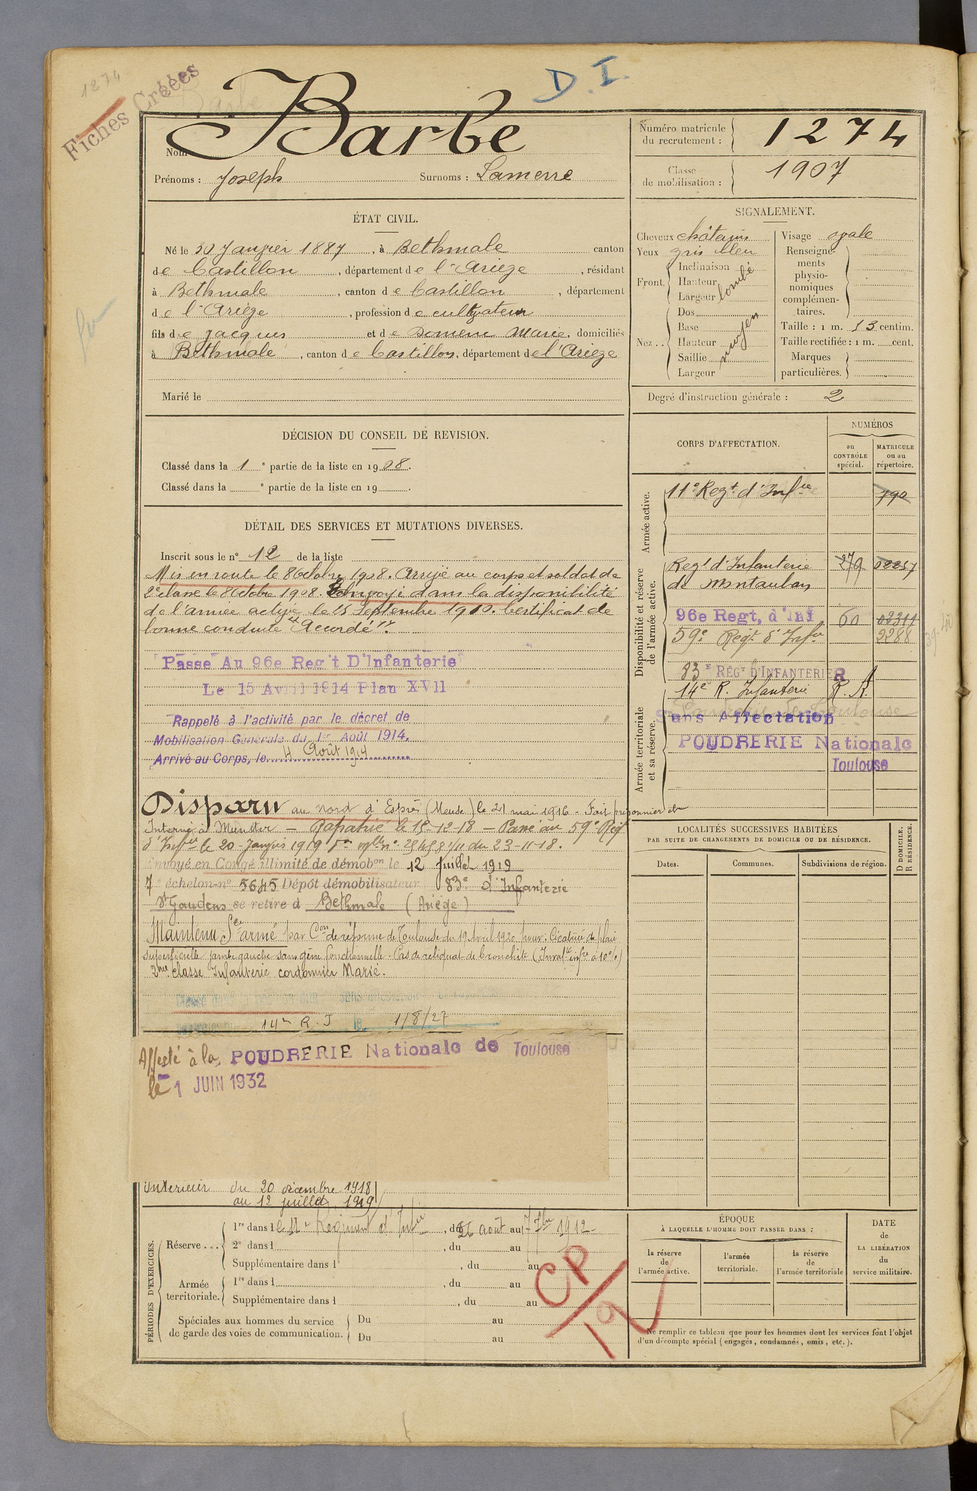 1274
Fiches Créées
D.I.
Nom Barbe
Prénoms : Joseph Surnoms : Lamerre
Numéro matricule du recrutement : 1274
Classe de mobilisation : 1907
ÉTAT CIVIL.
Né le 30 Janvier 1887, à Bethmale canton
de Castillon, département de l'Ariège, résidant
à Bethmale, canton de Castillon, département
de l'Ariège, profession de cultivateur
fils de Jacques et de Domenc Marie, domiciliés
à Bethmale, canton de Castillon, département de l'Ariège
Marié le
SIGNALEMENT.
Cheveux châtains
Yeux gris bleu
Front. Inclinaison
Hauteur
Largeur
bombé
Nez.. Dos
Base
Hauteur
Saillie
Largeur
moyen
Visage ovale
Renseignements physionomiques complémentaires.
Taille : 1 m. 53 centim.
Taille rectifiée : 1 m. cent.
Marques particulières.
Degré d'instruction générale : 2
DÉCISION DU CONSEIL DE REVISION.
Classé dans la 1e partie de la liste en 1908.
Classé dans la e partie de la liste en 19 .
CORPS D'AFFECTATION.
NUMÉROS
au CONTRÔLE spécial.
MATRICULE ou au répertoire.
Armée active.
11e Regt d'Infie 790
Disponibilité et réserve de l'armée active.
Regt d'Infanterie de Montauban 279
96e Regt, d'Inf 60 02311
59e Regt d'Infie 2288
83e RÉGt D'INFANTERIE R
14e R. Infanterie R. A
Armée territoriale et sa réserve.
Sans Affectation
POUDRERIE Nationale
Toulouse
DÉTAIL DES SERVICES ET MUTATIONS DIVERSES.
Inscrit sous le n° 12 de la liste
Mis en route le 8 Octobre 1908. Arrivé au corps et soldat de
2e classe le 8 Octobre 1908. Envoyé dans la disponibilité
de l'armée active le 25 Septembre 1910. Certificat de
bonne conduite "Accordé".
Passé Au 96e Reg't D'Infanterie
Le 15 Avril 1914 Plan XVII
Rappelé à l'activité par le décret de
Mobilisation Générale du 1er Août 1914.
Arrivé au Corps, le 4 Août 1914
Disparu au nord d'Esnes (Meuse) le 21 mai 1916 - Fait prisonnier
Interné à Munster - Rapatrié le 18-12-18 - Passé au 59e Regt
d'Infie le 20 Janvier 1919 du 23-11-18.
Envoyé en Congé illimité de démobon le 12 Juillet 1919
7e échelon n° 5645 Dépôt démobilisateur 83e d'Infanterie
St Gaudens se retire à Bethmale (Ariège)
Maintenu Sce armé par Con de réforme de Toulouse du 19 Avril 1920 pour. Cicatrice de plaie
superficielle jambe gauche sans gêne fonctionnelle. Pas de reliquat de bronchite (Invalté infre à 10%)
Infanterie cordonnier Marié.
14e R.I 1/8/27
Affecté à la POUDRERIE Nationale de Toulouse
le 1 JUIN 1932
Intérieur du 20 décembre 1918
au 12 juillet 1919
LOCALITÉS SUCCESSIVES HABITÉES
PAR SUITE DE CHANGEMENTS DE DOMICILE OU DE RÉSIDENCE.
Dates.
Communes.
Subdivisions de région.
D DOMICILE. R RÉSIDENCE.
PÉRIODES D'EXERCICES.
Réserve... 1re dans le 11e Régiment d'Infie, du 26 août au 7 7bre 1912
2e dans l , du au
Supplémentaire dans l , du au
Armée territoriale. 1re dans l , du au
Supplémentaire dans l , du au
Spéciales aux hommes du service de garde des voies de communication. Du au
Du au
CP/19
ÉPOQUE
À LAQUELLE L'HOMME DOIT PASSER DANS :
la réserve de l'armée active.
l'armée territoriale.
la réserve de l'armée territoriale
DATE de LA LIBÉRATION du service militaire.
Ne remplir ce tableau que pour les hommes dont les services font l'objet
d'un décompte spécial (engagés, condamnés, omis, etc.).